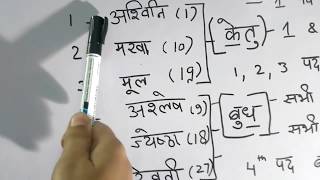 1 अश्विनि (1)
2 मखा (10) केतु - 1 &
मूल (19) 1, 2, 3 पद
अश्लेष (9) सभी
ज्येष्ठा (18) बुध सभी
(27) 4th पद